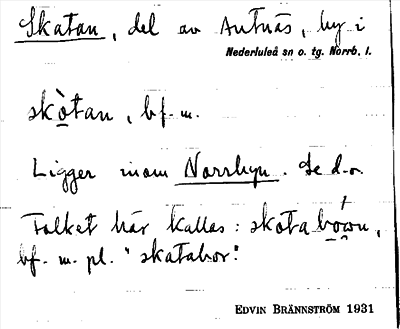 Skatan, del av Autnäs, by i
Nederluleå sn o. tg. Norrb. l.
skò̱tan, bf. m.
Ligger inom Norrbyn. Se d.o.
Folket här kallas: skotabówn,
bf. m. pl. "skatabor".
EDVIN BRÄNNSTRÖM 1931